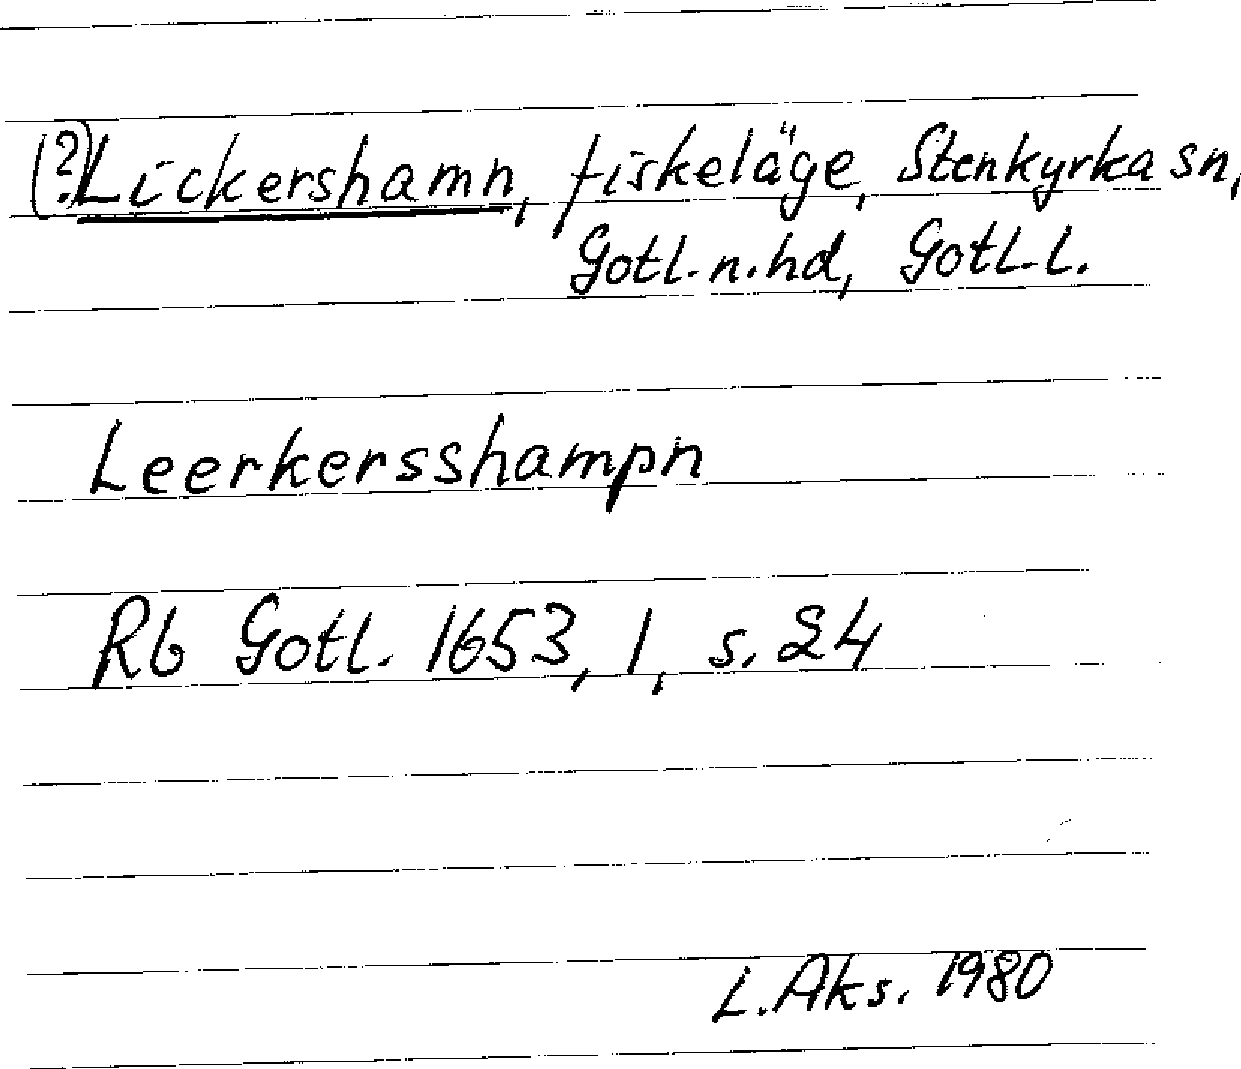 (?)Lickershamn, fiskeläge, Stenkyrka sn,
Gotl. n. hd, Gotl. l.
Leerkersshampn
Rb Gotl. 1653, 1, s. 24
L. Aks. 1980